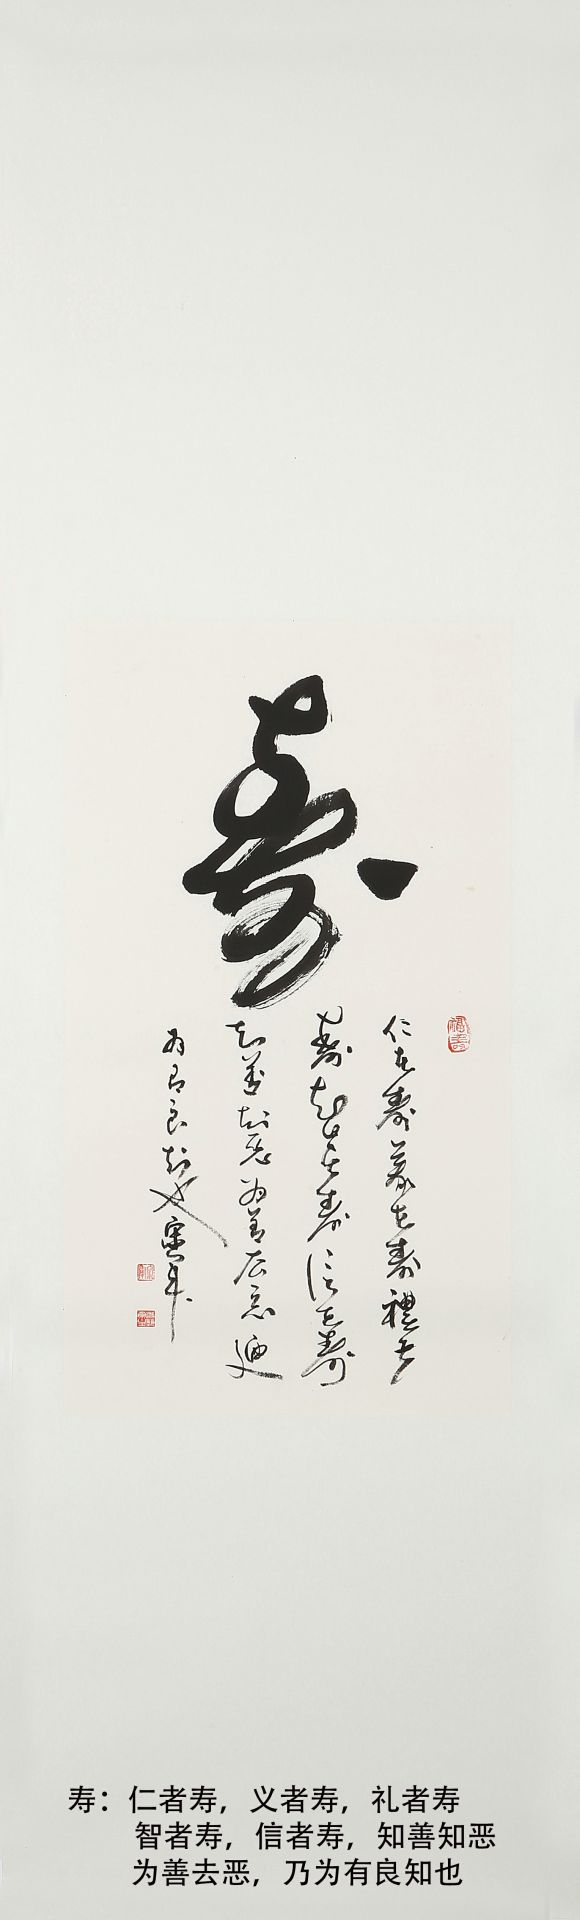 寿
仁者寿義者寿禮者
寿智者寿信者寿
知善知恶为善去恶迺
为有良知也
寿：仁者寿，义者寿，礼者寿
智者寿，信者寿，知善知恶
为善去恶，乃为有良知也